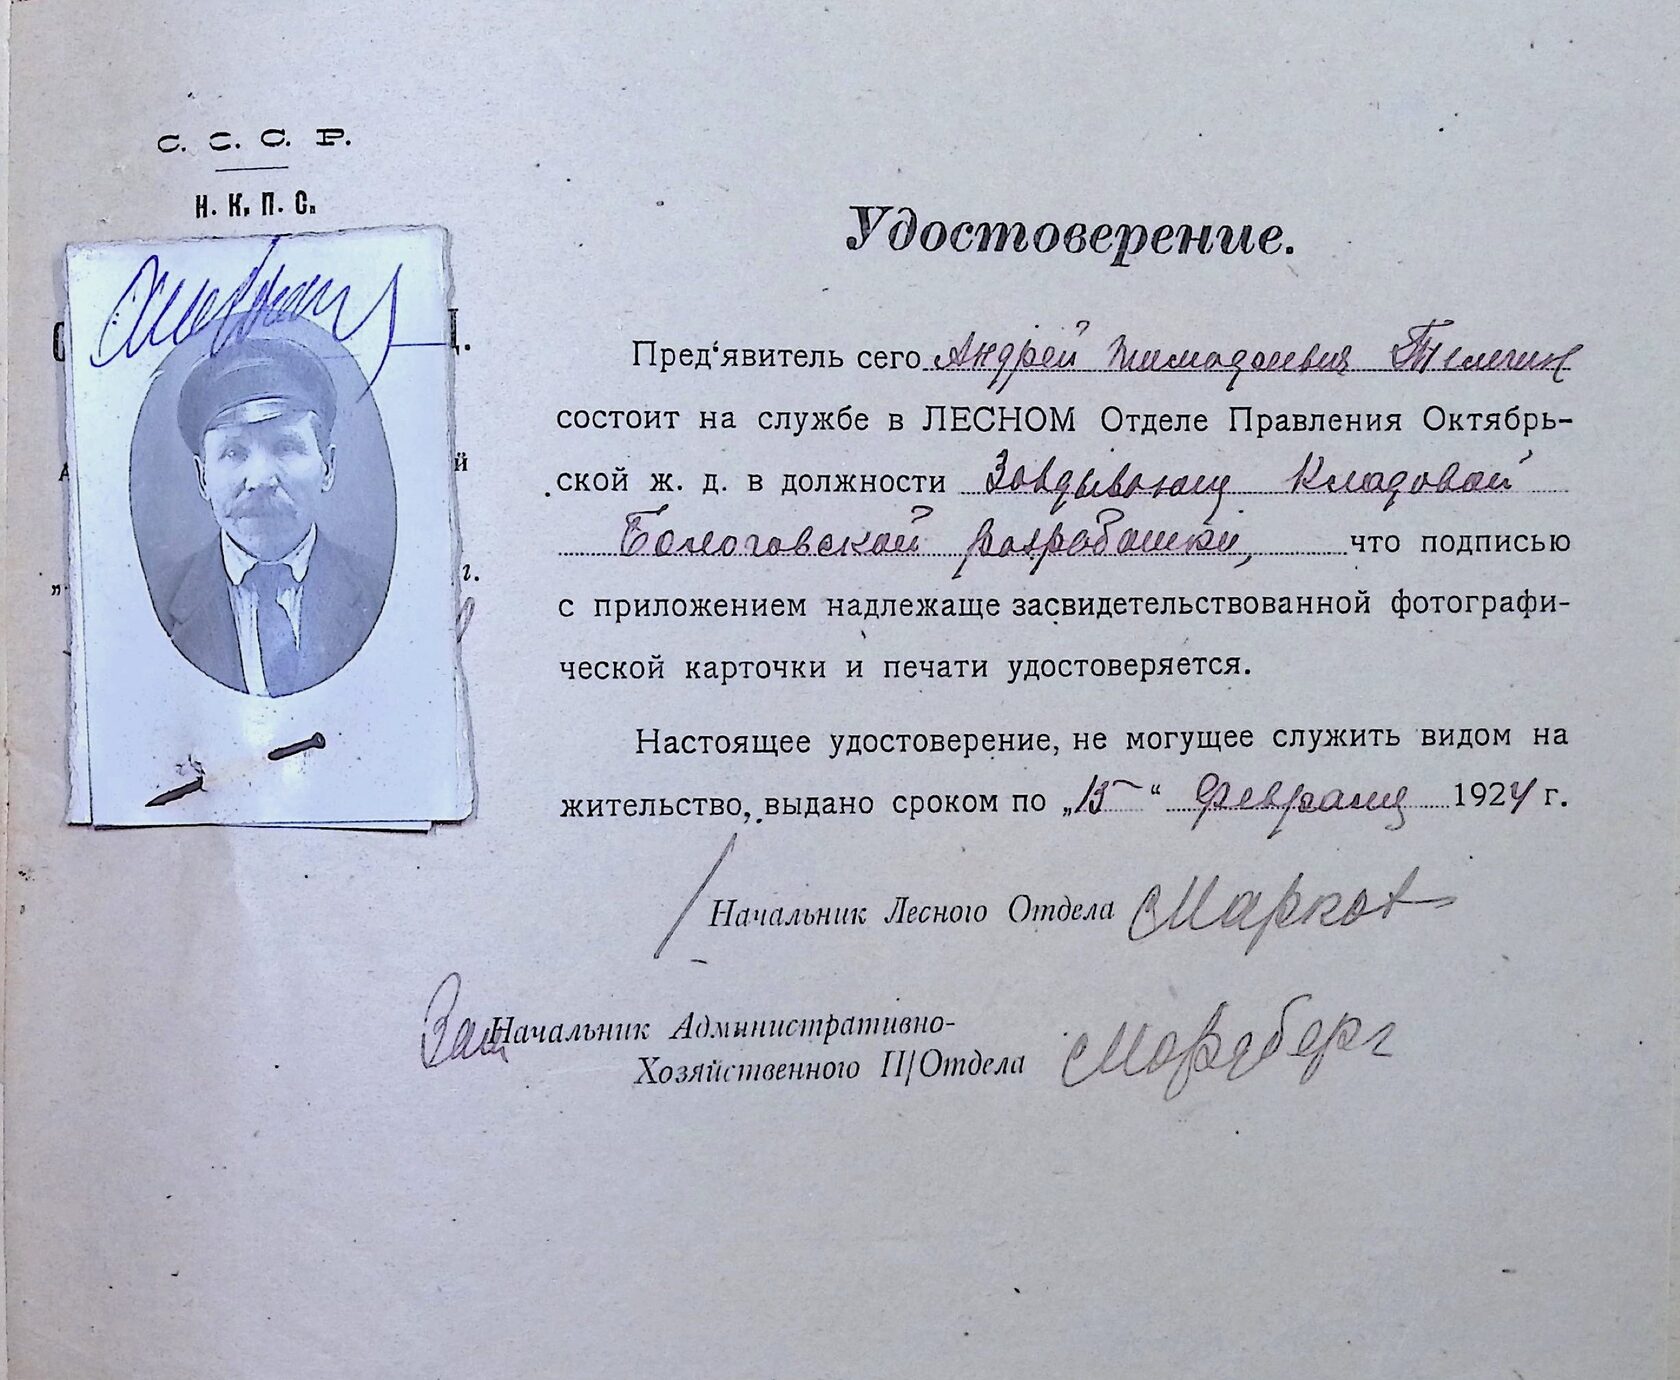 С. С. С. Р.
Н. К. П. С.
Удостоверение.
Пред'явитель сего Андрей Тимофеевич Телегин
состоит на службе в ЛЕСНОМ Отделе Правления Октябрь-
ской ж. д. в должности Завдывающ Кладовой
Бологовской разработки, что подписью
с приложением надлежаще засвидетельствованной фотографи-
ческой карточки и печати удостоверяется.
Настоящее удостоверение, не могущее служить видом на
жительство, выдано сроком по „15“ Февраля 1924 г.
Начальник Лесного Отдела Марков
Зам Начальник Административно-
Хозяйственного П/Отдела